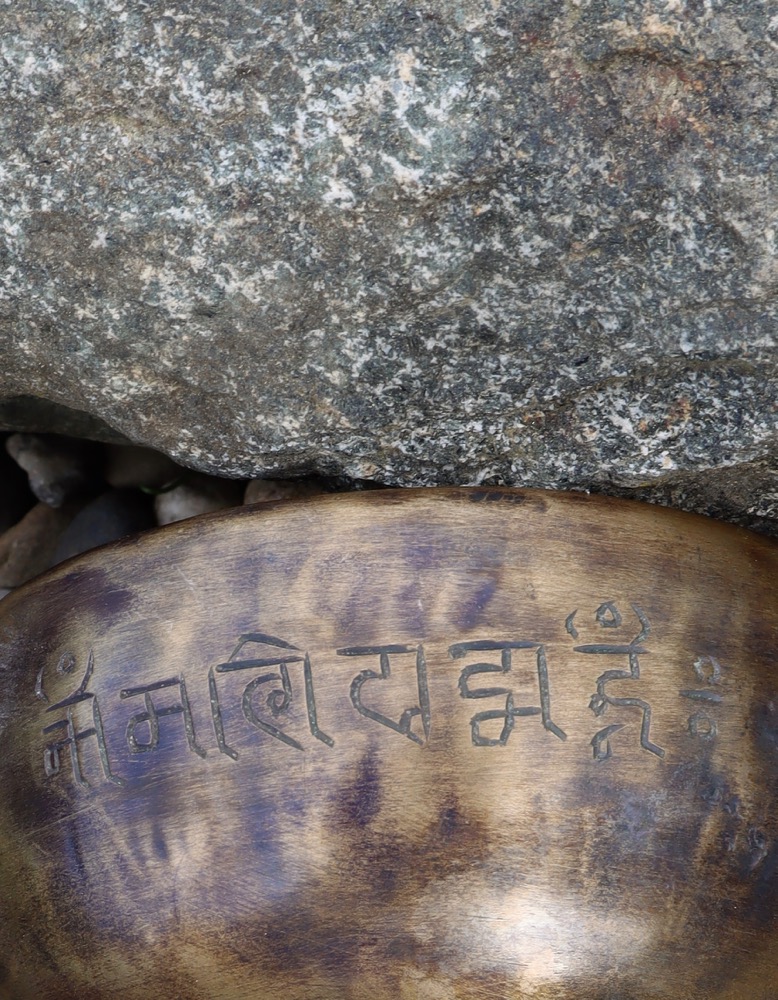 ॐ मणि पद्म हूँ